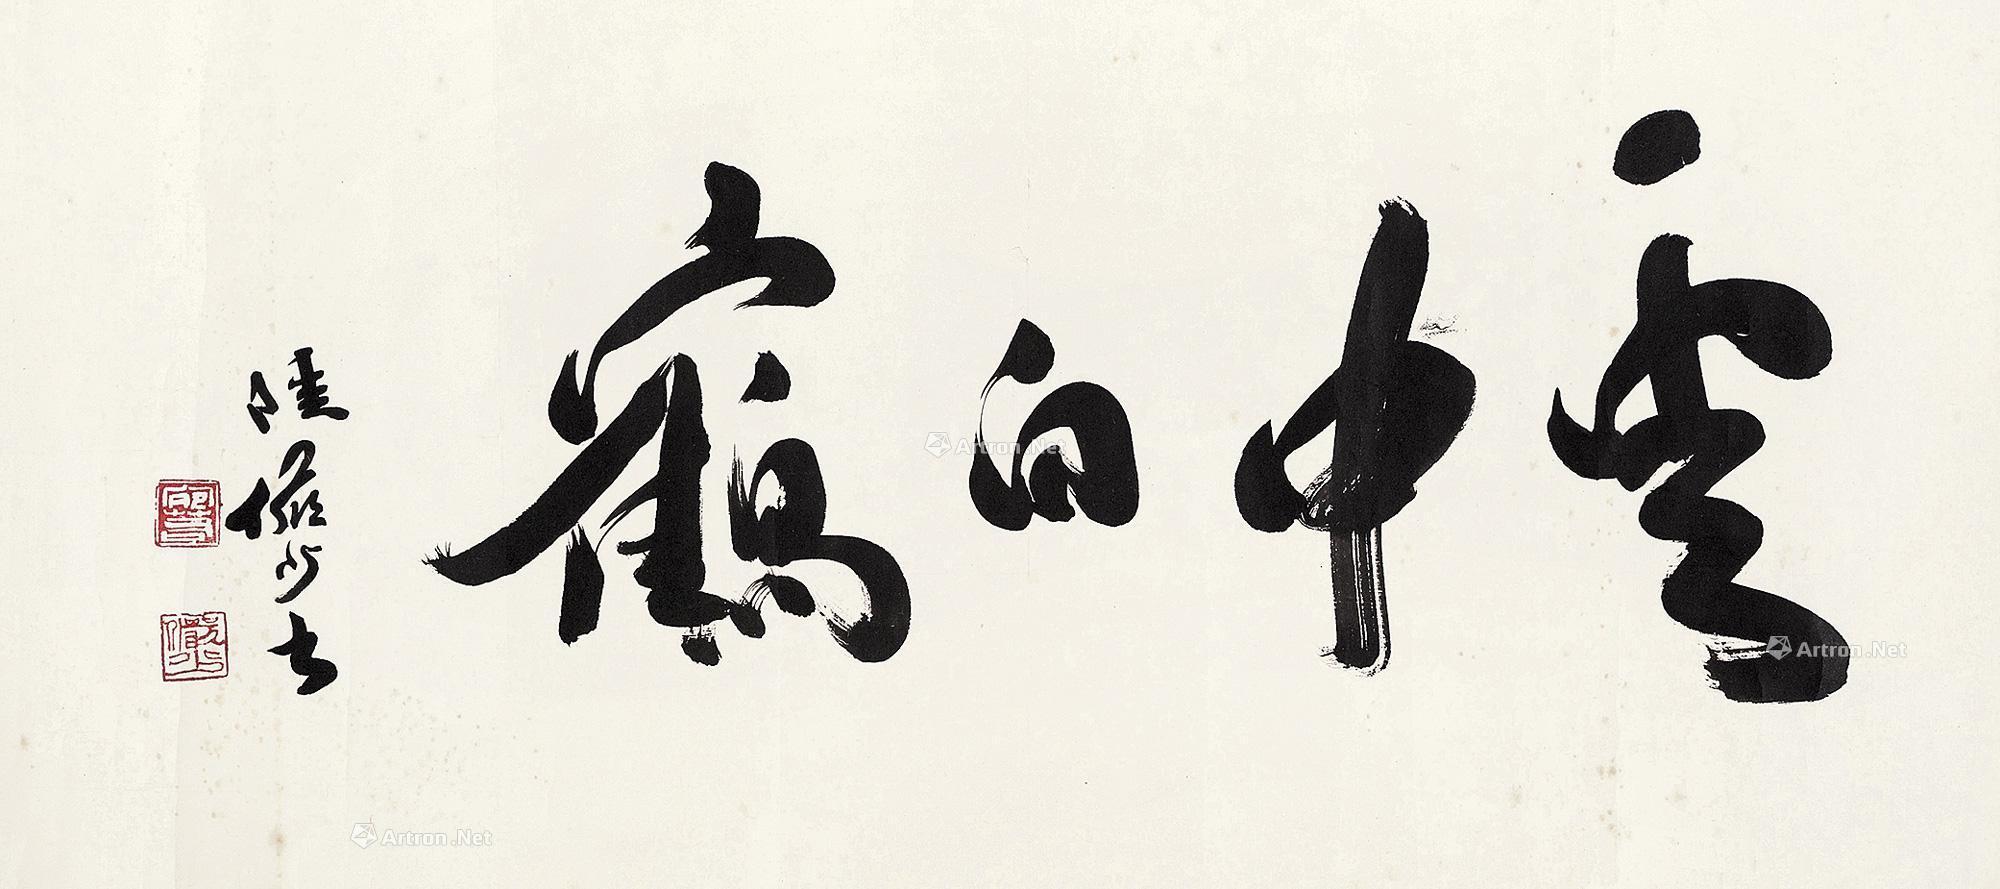 雲中白鶴
陸儼少書
Artron.Net
Artron.Net
Artron.Net